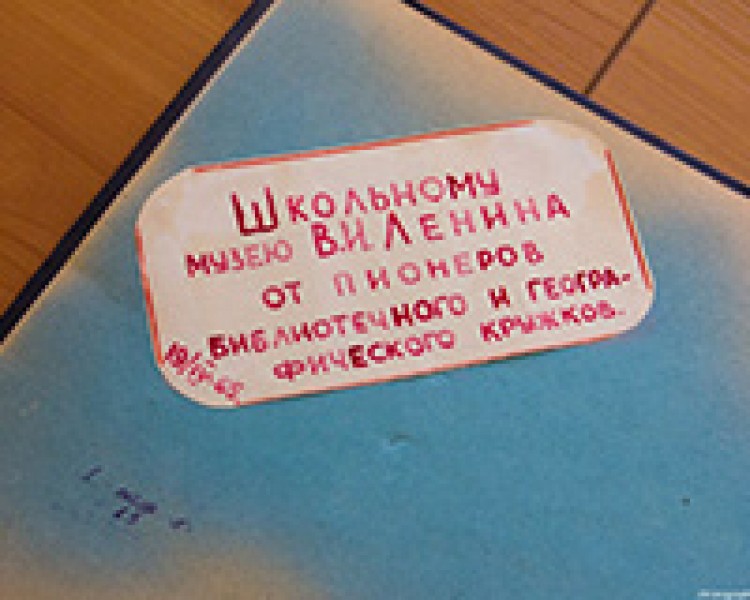 ШКОЛЬНОМУ
МУЗЕЮ В.И. ЛЕНИНА
ОТ ПИОНЕРОВ
БИБЛИОТЕЧНОГО И ГЕОГРА-
ФИЧЕСКОГО КРУЖКОВ.